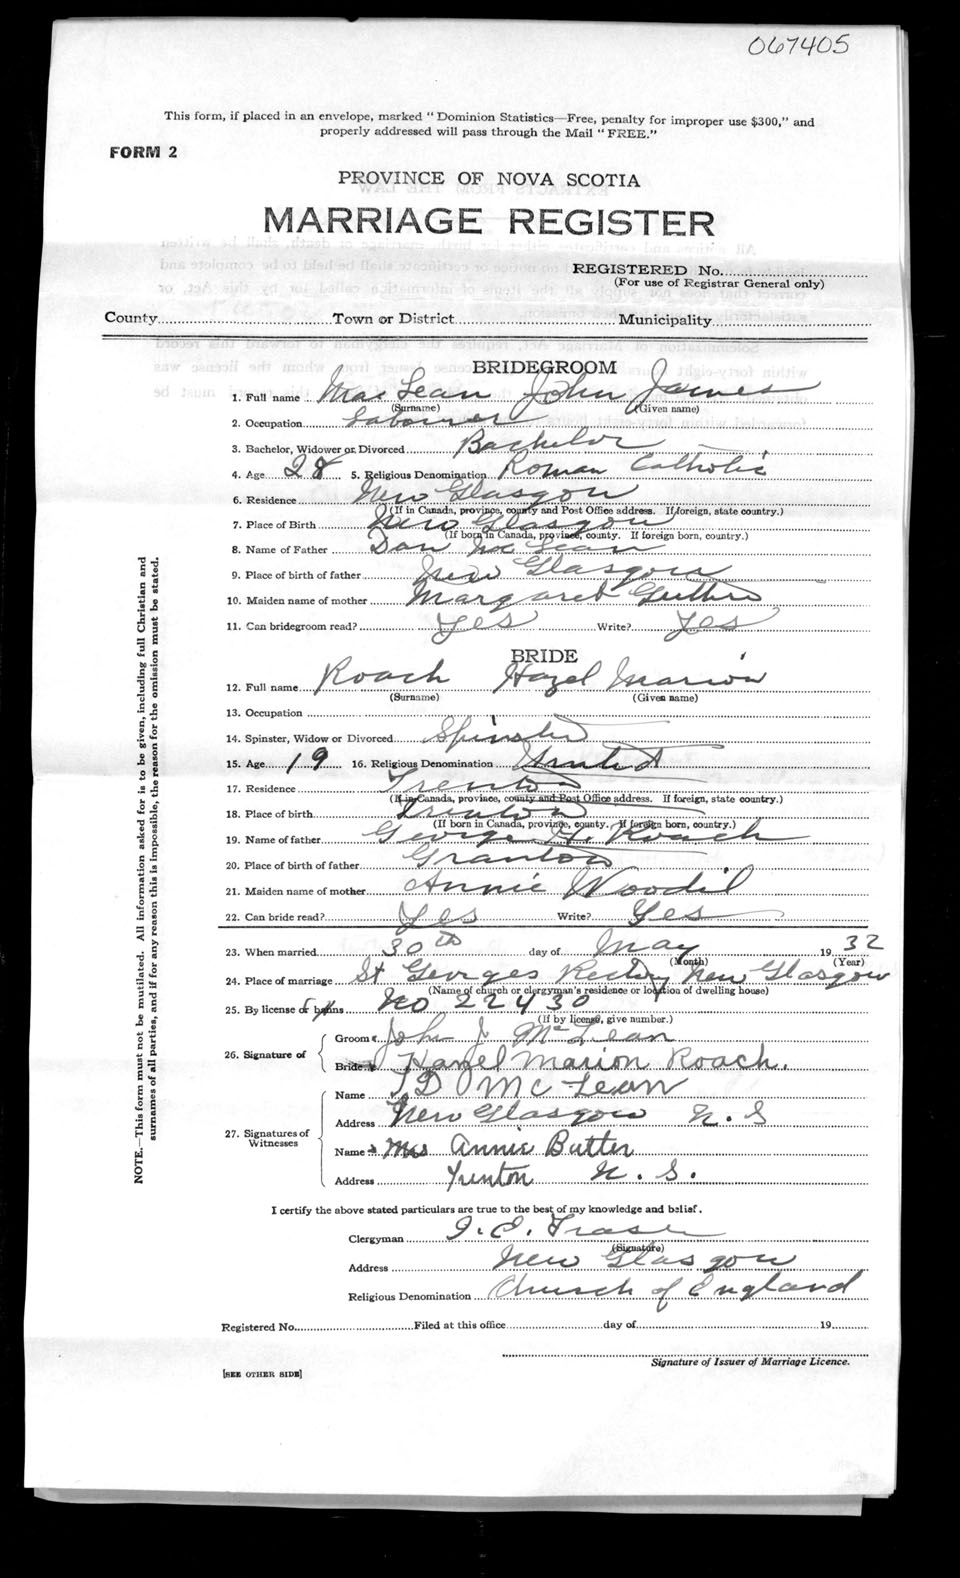 067405
This form, if placed in an envelope, marked "Dominion Statistics—Free, penalty for improper use $300," and
properly addressed will pass through the Mail "FREE."
FORM 2
PROVINCE OF NOVA SCOTIA
MARRIAGE REGISTER
REGISTERED No.
(For use of Registrar General only)
County Town or District Municipality
BRIDEGROOM
1. Full name MacLean John James
(Surname) (Given name)
2. Occupation Labourer
3. Bachelor, Widower or Divorced Bachelor
4. Age 28 5. Religious Denomination Roman Catholic
6. Residence New Glasgow
(If in Canada, province, county and Post Office address. If foreign, state country.)
7. Place of Birth New Glasgow
(If born in Canada, province, county. If foreign born, country.)
8. Name of Father Dan McLean
9. Place of birth of father New Glasgow
10. Maiden name of mother Margaret Guthro
11. Can bridegroom read? Yes Write? Yes
BRIDE
12. Full name Roach Hazel Marion
(Surname) (Given name)
13. Occupation
14. Spinster, Widow or Divorced Spinster
15. Age 19 16. Religious Denomination United
17. Residence Trenton
(If in Canada, province, county and Post Office address. If foreign, state country.)
18. Place of birth Trenton
(If born in Canada, province, county. If foreign born, country.)
19. Name of father George H. Roach
20. Place of birth of father Granton
21. Maiden name of mother Annie Woodil
22. Can bride read? Yes Write? Yes
23. When married 30th day of May 19 32
(Month) (Year)
24. Place of marriage St Georges Rectory New Glasgow
(Name of church or clergyman's residence or location of dwelling house)
25. By license or banns No 22430
(If by license, give number.)
26. Signature of
Groom John J McLean
Bride Hazel Marion Roach.
27. Signatures of Witnesses
Name J D McLean
Address New Glasgow N.S
Name Mrs Annie Butter
Address Trenton N.S.
I certify the above stated particulars are true to the best of my knowledge and belief.
Clergyman I. E. Fraser
(Signature)
Address New Glasgow
Religious Denomination Church of England
Registered No. Filed at this office day of 19
Signature of Issuer of Marriage Licence.
[SEE OTHER SIDE]
NOTE.—This form must not be mutilated. All information asked for is to be given, including full Christian and
surnames of all parties, and if for any reason this is impossible, the reason for the omission must be stated.